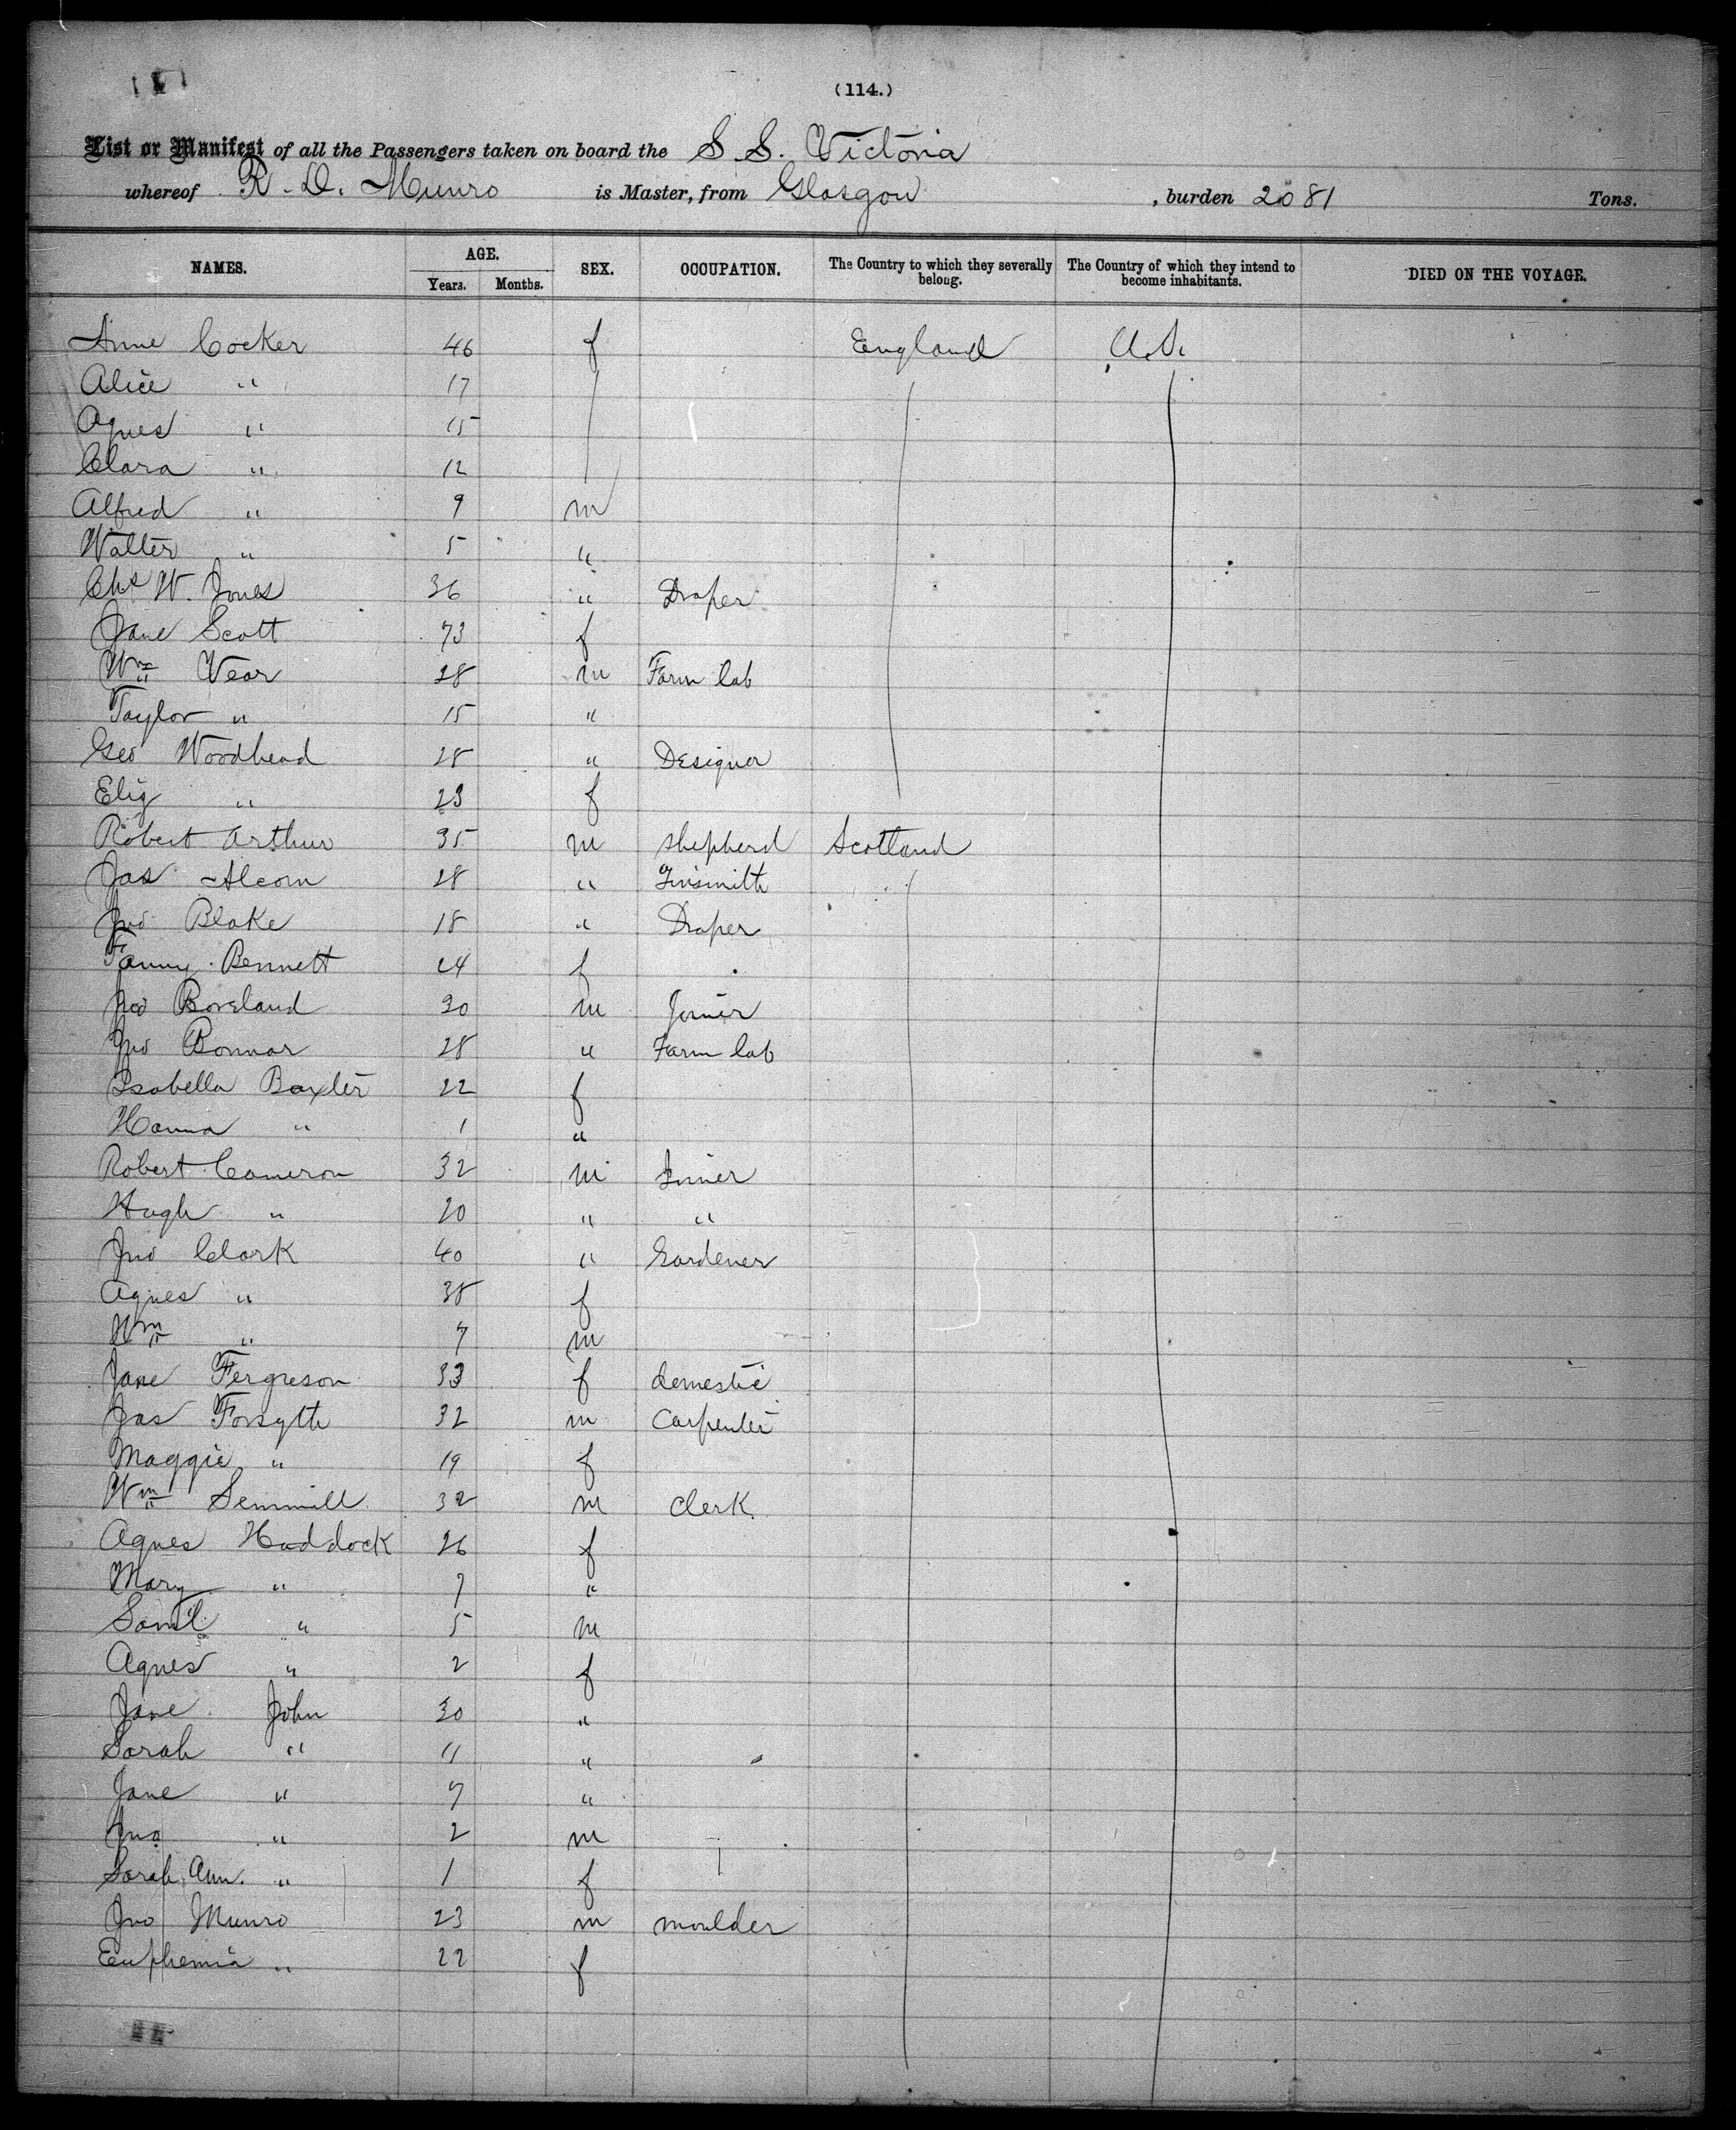 (114.)
List or Manifest of all the Passengers taken on board the S.S. Victoria
whereof R. D. Munro is Master, from Glasgow, burden 2081 Tons.
NAMES. AGE. Years. Months. SEX. OCCUPATION. The Country to which they severally belong. The Country of which they intend to become inhabitants. DIED ON THE VOYAGE.
Anne Cocker 46 f England U.S.
Alice " 17
Agnes " 15
Clara " 12
Alfred " 9 m
Walter " 5 "
Chs W. Jones 36 " Draper
Jane Scott 73 f
Wm Vear 28 m Farm lab
Taylor " 15 "
Geo Woodhead 28 " Designer
Eliz " 23 f
Robert Arthur 35 m shepherd Scotland
Jas Alcorn 28 " Tinsmith
Jno Blake 18 " Draper
Fanny Bennett 24 f
Jno Borland 30 m Joiner
Jno Bonnar 28 " Farm lab
Isabella Baxter 22 f
Hanna " 1 "
Robert Cameron 32 m Joiner
Hugh " 20 " "
Jno Clark 40 " Gardener
Agnes " 38 f
Wm " 7 m
Jane Fergreson 33 f domestic
Jas Forsyth 32 m Carpenter
Maggie " 19 f
Wm 32 m Clerk
Agnes Haddock 26 f
Mary " 7 "
Saml " 5 m
Agnes " 2 f
Jane John 30 "
Sarah " 11 "
Jane " 7 "
Jno " 2 m
Sarah Ann. " 1 f
Jno Munro 23 m moulder
Euphemia " 22 f